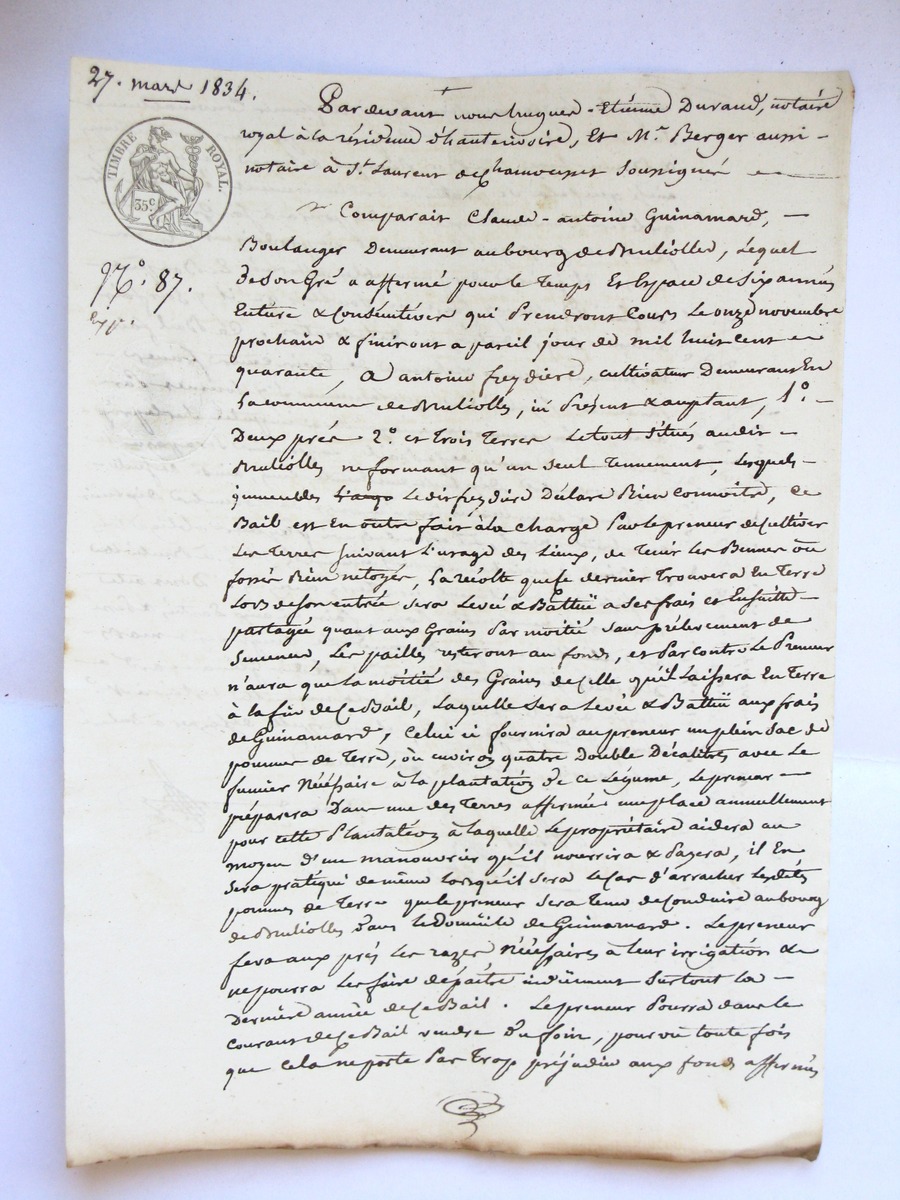 27. mars 1834.
TIMBRE ROYAL.
35 c.
N.° 87.
Exp.
Pardevant nous hugues-Etienne Durand, notaire
royal à la résidence d'hauterivoire, Et M.e Berger aussi
notaire à St. Laurent de chamousset Soussignés
Comparait Claude-antoine Guinamard,
Boulanger Demeurant au bourg de Brulioles, Lequel
de Son Gré a affermé pour le Temps Et Espace de Six années
Entière & Conséutives qui Prendront Cours Le onze novembre
prochain & finiront a pareil jour de mil huit cent
quarante, a antoine freydiere, cultivateur Demeurant En
La commune de Brulioles, ici Présent & aceptant, 1.°
Deux prés 2.° et trois Terres Le tout Situés audit
Brulioles ne formant qu'un Seul Tennement, Lesquels
jmmeubles Ledit freydiere Déclare Bien connoitre, Ce
Bail est En outre fait à la charge Par Le preneur de Cultiver
Les Terres suivant L'usage des Lieux, de Tenir Les
fossés Bien netoyés, La récolte que ce dernier Trouvera En Terre
Lors de Son entrée sera Levée & Battüe a Ses frais et Ensuitte
partagée quant aux Grains Par moitié Sans prélevement de
Semences, Les pailles resteront au fonds, et Par contre Le Preneur
n'aura que La moitié des Grains de Celle qu'il Laissera En Terre
à La fin de Ce Bail, Laquelle Sera Levée & Battüe aux frais
de Guinamard, Celui ci fournira au preneur un plein Sac de
pommes de Terre, ou environ quatre Double Décalitres avec Le
fumier Nécessaire à la plantation de ce Légume, Le preneur
préparera Dans une des Terres affermées une place annuellement
pour cette Plantation à laquelle Le propriétaire aidera au
moyen d'un manouvrier qu'il nourrira & Payera, il En
Sera pratiqué de même Lorsqu'il Sera Le Cas d'arracher Lesdites
pommes de Terre que Le preneur Sera Tenu de Conduire au bourg
de Brulioles Dans Le Domicile de Guinamard. Le preneur
fera aux prés Les razes Nécessaires à Leur irrigation &
ne pourra Les faire dépaitre indüement Surtout La
Dernière année de Ce Bail. Le preneur Pourra dans le
Courant de Ce Bail vendre Du foin, pourvu toute fois
que Cela ne porte Par Trop préjudice aux fonds affermés